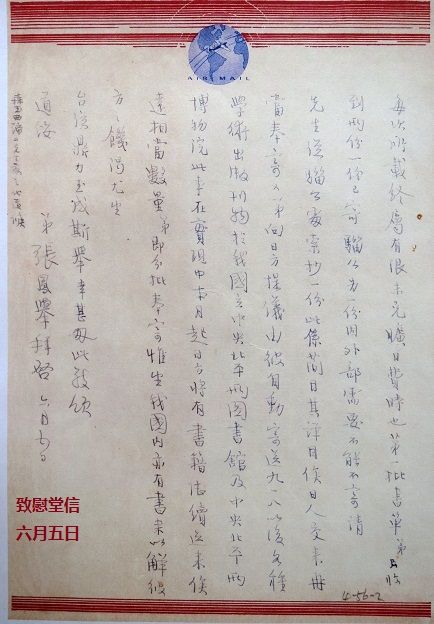 AIR MAIL
每次所載終屬有限未免曠日費時也第一批書單弟只收
到兩份一份已寄騮公另一份因外部需要不能不寄請
先生從騮公處索抄一份此係簡目其詳目俟日人交來再
當奉寄又弟向日方提議由彼自動寄送九一八以後各種
學術出版刊物於我國立中央北平兩圖書館及中央北平兩
博物院此事在實現中本月起日方將有書籍陸續送來俟
達相當數量弟即分批奉寄惟望我國內亦有書來以解彼
方之饑渴尤望
台從鼎力玉成斯舉幸甚匆此敬頌
道安 弟張鳳舉拜啓 六月五日
致慰堂信
六月五日
4-56-2